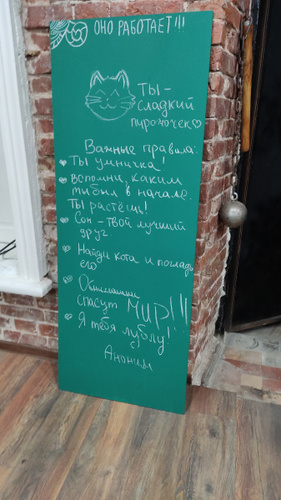 ОНО РАБОТАЕТ!!!
ТЫ -
СЛАДКИЙ
ПИРОЖОЧЕК♡
Важные правила:
♡ Ты умничка!
♡ Вспомни, каким
ты был в начале.
Ты растёшь!
♡ Сон - твой лучший
друг
♡ Найди кота и погладь
его
♡ Обнимашки
спасут МИР!!!
♡ Я тебя люблю!
Аноним